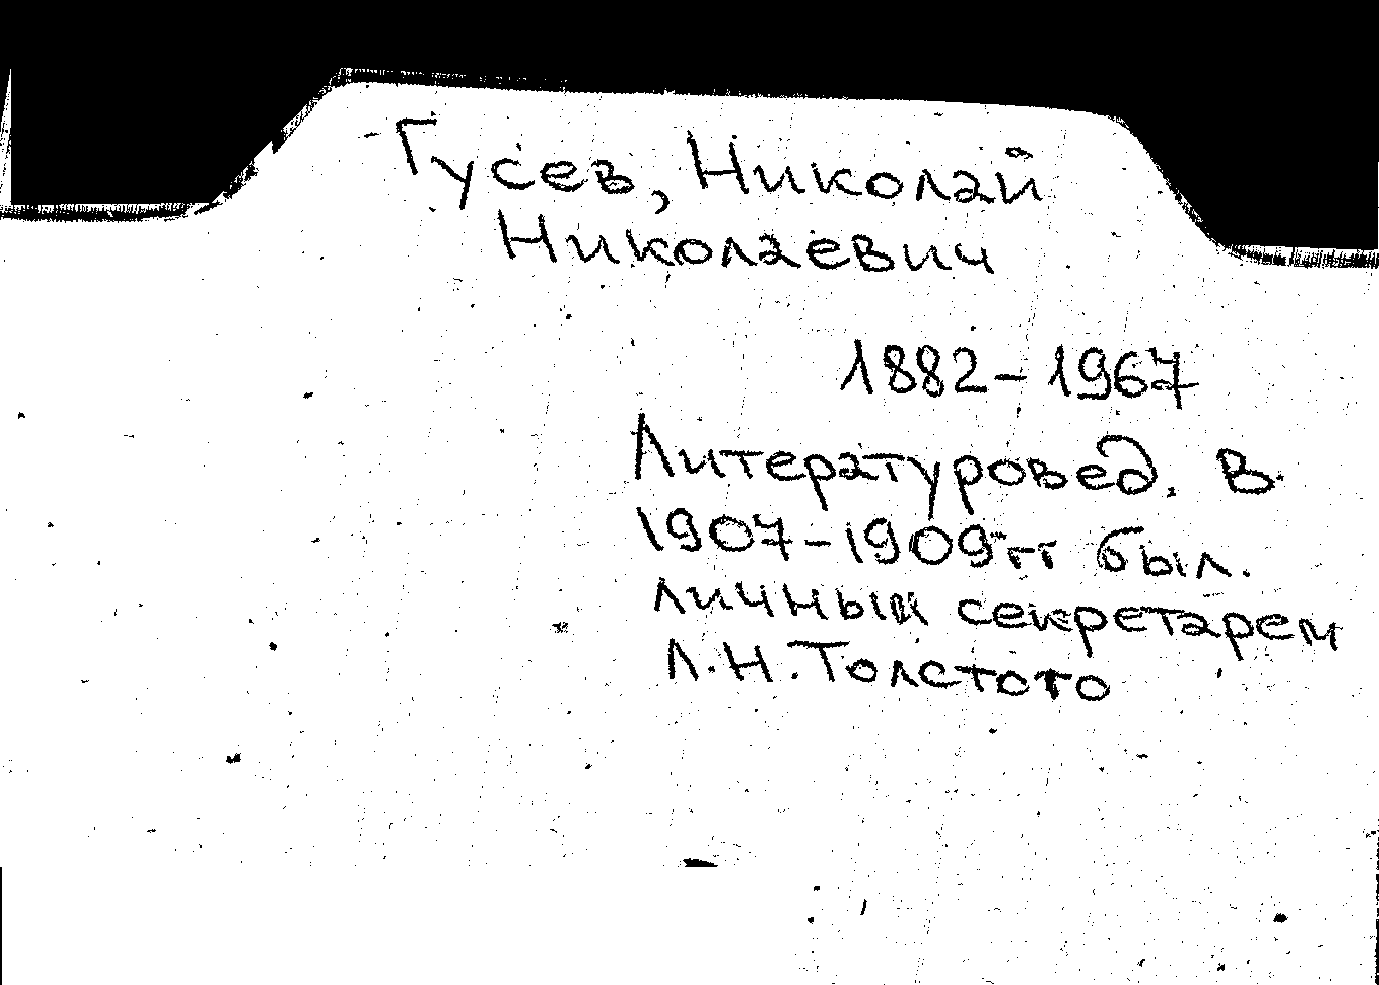 Гусев, Николай
Николаевич
1882-1967
Литературовед. В
1907-1909гг был.
личным секретарем
Л.Н.Толстого